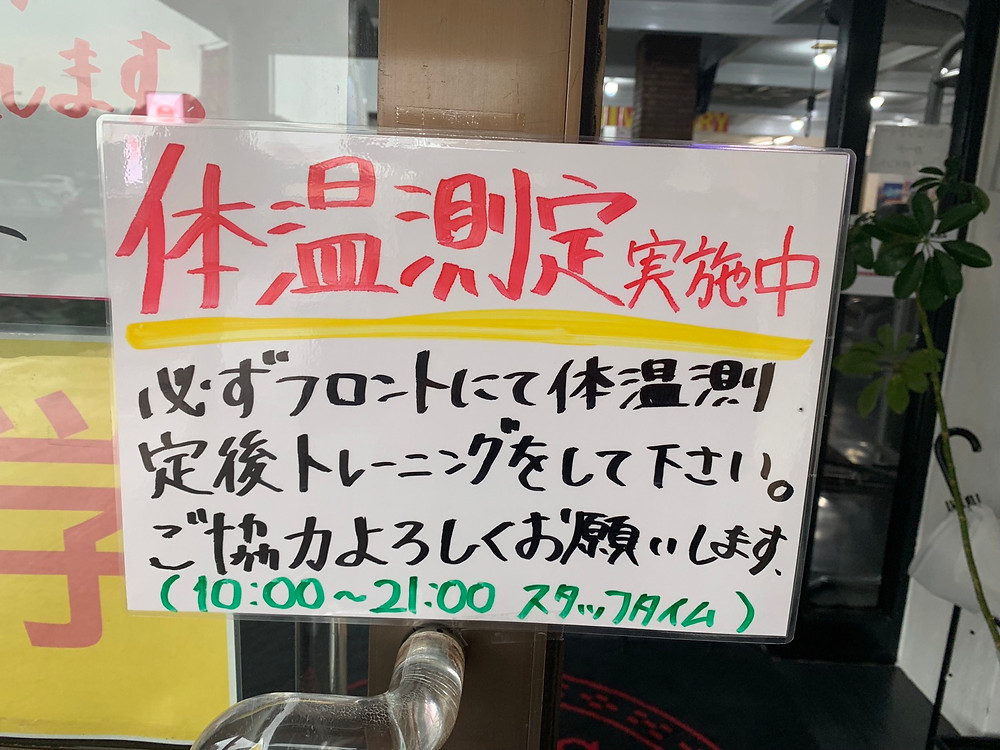 体温測定実施中
必ずフロントにて体温測
定後トレーニングをして下さい。
ご協力よろしくお願いします。
(10:00〜21:00 スタッフタイム)